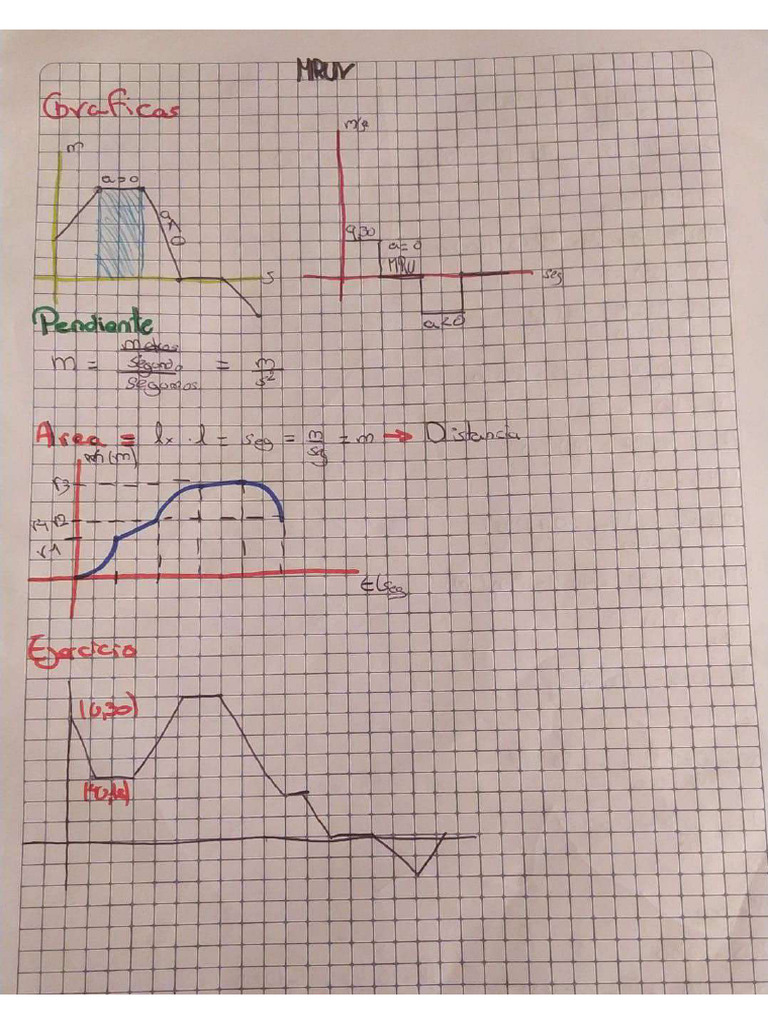 MRUV
Graficas
m
a>0
a<0
s
m/s
a>0
a=0
MRU
seg
a<0
Pendiente
m = metros
segundo
segundos
= m
s²
Area = lx . l = seg = m = m → Distancia
sg
(m)
r3
r4 r2
r1
t (seg
Ejercicio
(0,30)